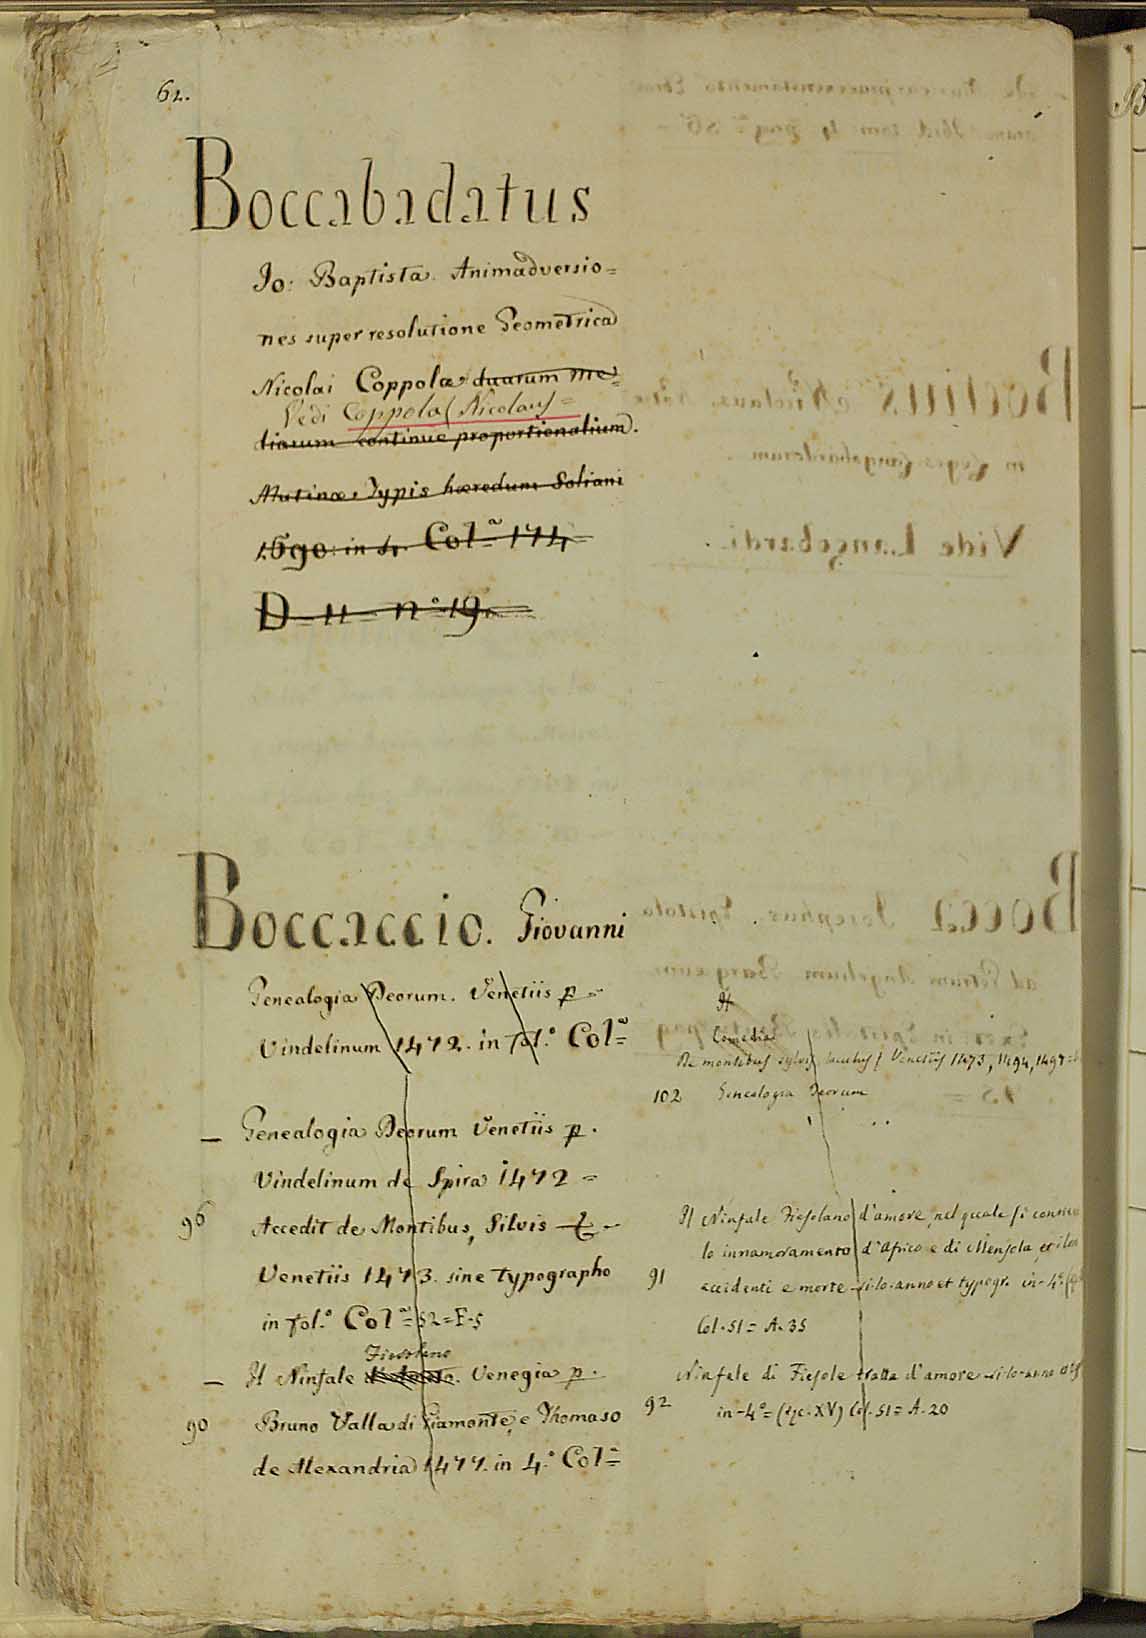 62.
Boccabadatus
Jo: Baptista. Animadversio=
nes super resolutione Geometrica
Nicolai Coppolæ duarum me=
Vedi Coppola (Nicolaus) =
diarum continue proportionalium.
Mutinæ, Typis hæredum Soliani
1690: in 4. Col.ª 174
D = 11 = n.º 19.
Boccaccio. Giovanni
Genealogia Deorum. Venetiis p.
Vindelinum 1472. in fol.º Col.ª
— Genealogia Deorum Venetiis p.
Vindelinum de Spira 1472 =
96 Accedit de Montibus, Silvis
Venetiis 1473. sine typographo
in fol.º Col.ª 52 = F. 5
Fiesolano
— Il Ninfale Venegia p.
90 Bruno Valla di Piamonte, e Thomaso
de Alexandria 1477. in 4.º Col.ª
Il
Comedia
De montibus sylvis Venetiis 1473, 1494, 1497
102 Genealogia Deorum
Il Ninfale Fiesolano d'amore, nel quale si
lo innamoramento d'Africo e di Mensola, et
91 accidenti e morte si. lo. anno et typogr. in-4.º
Col. 51 = A. 35
Ninfale di Fiesole tratta d'amore si. lo. anno
92 in-4.º = (sec. XV) Col. 51 = A. 20
B